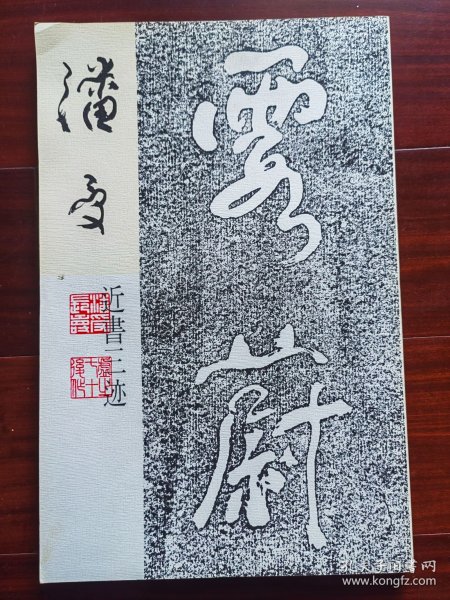 潘受
近書三迹
雲蔚
孔夫子旧书网
www.kongfz.com